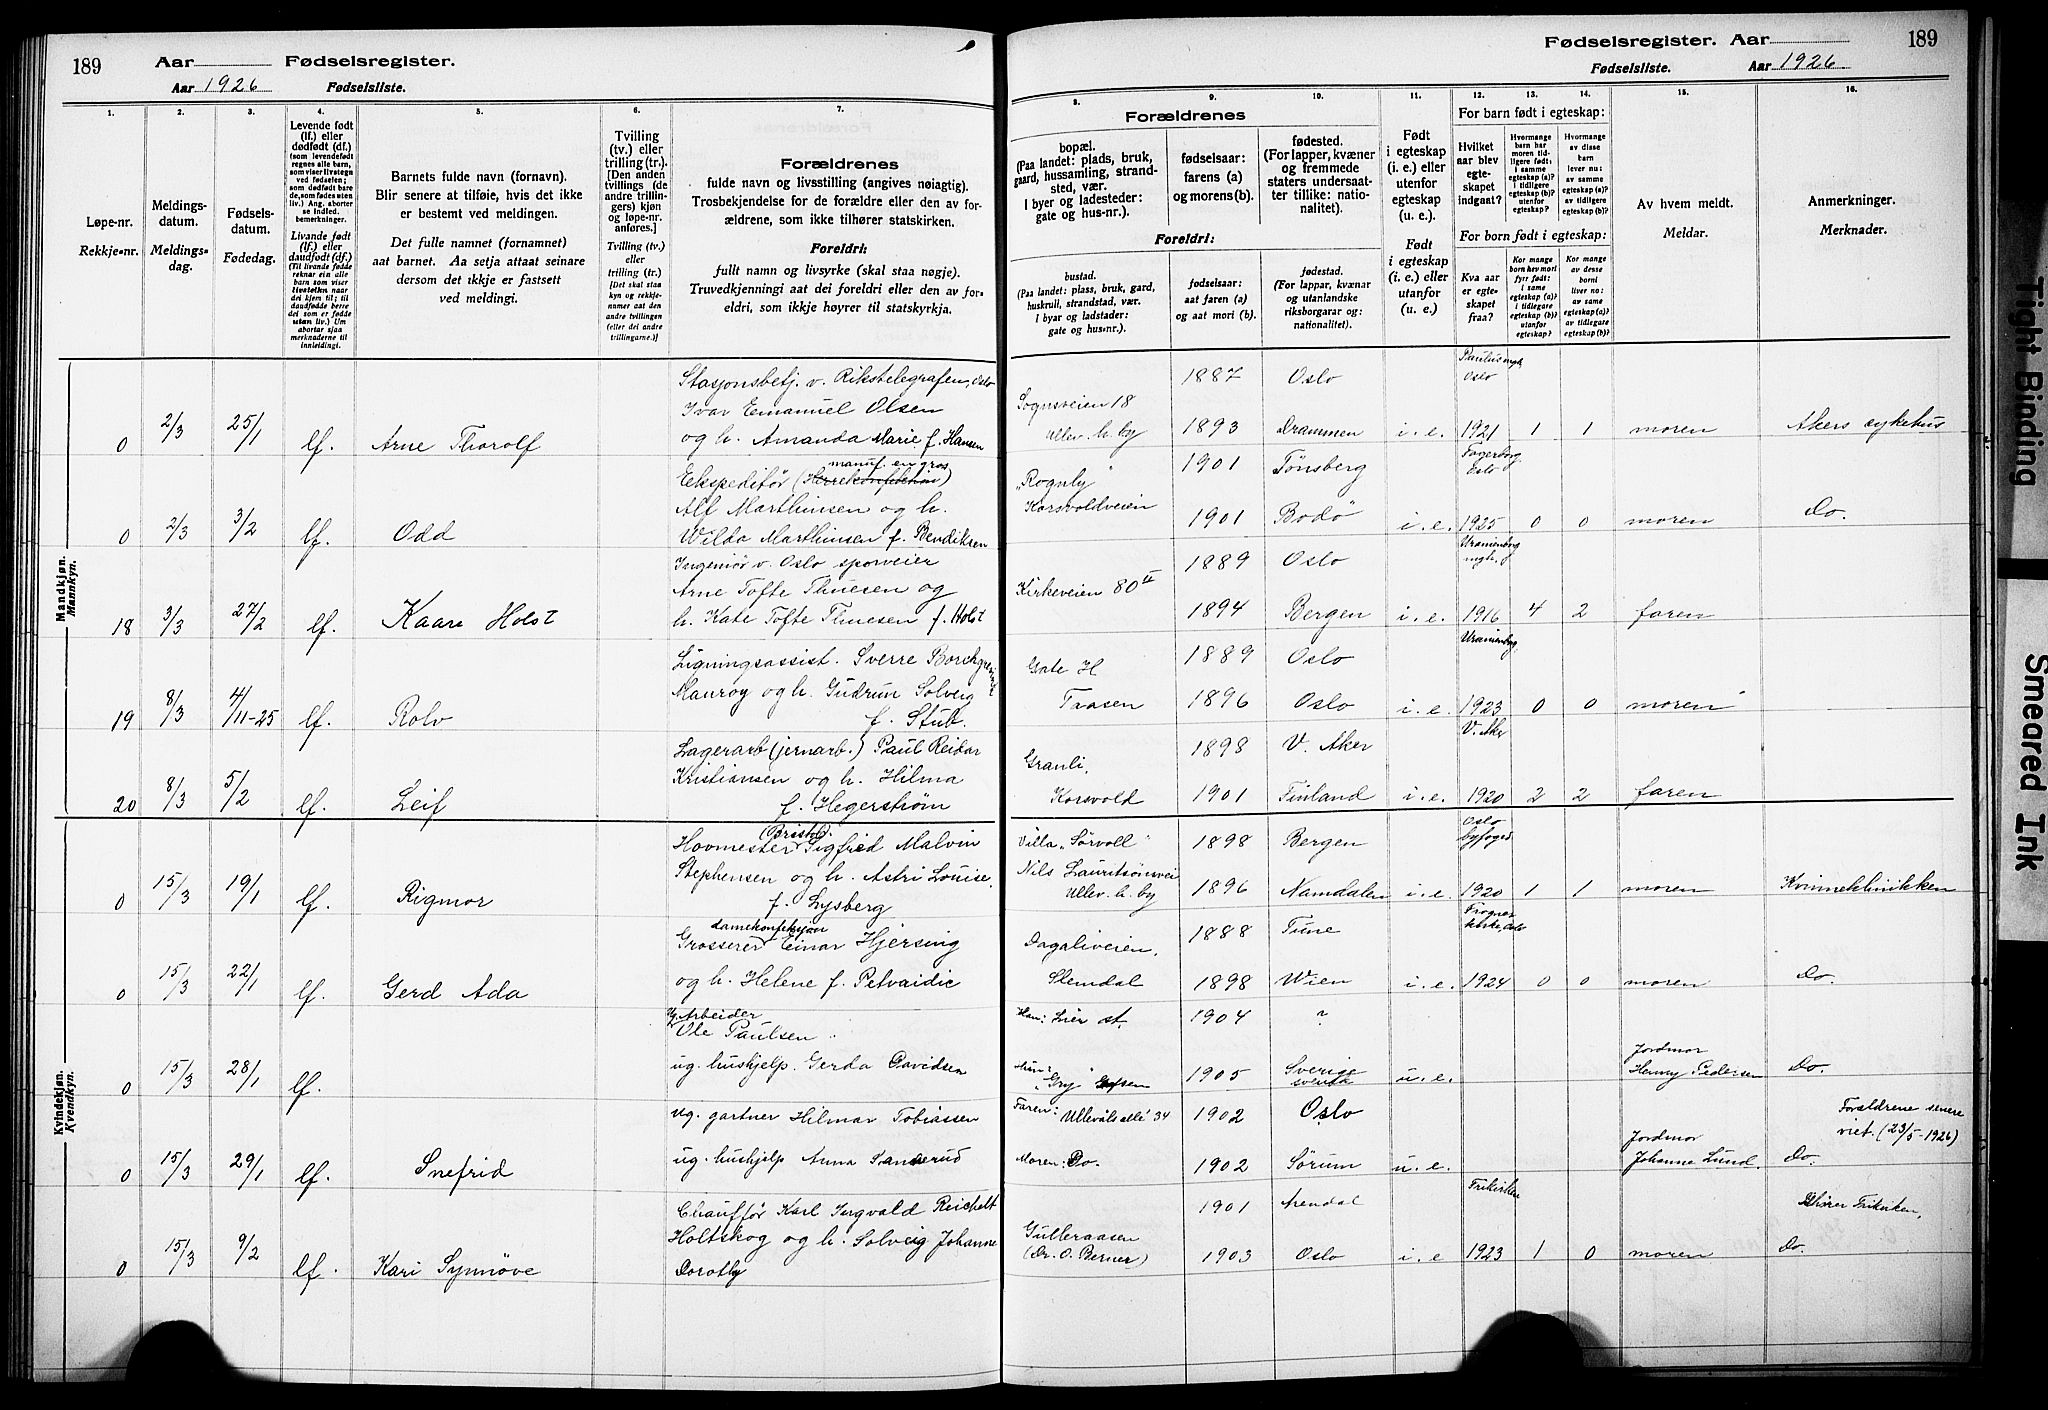 189
Aar
Fødselsregister.
Aar 1926
Fødselsliste.
1.
2.
3.
4.
5.
6.
7.
Løpe-nr.
Rekkje-nr.
Meldings-
datum.
Meldings-
dag.
Fødsels-
datum.
Fødedag.
Levende født
(lf.) eller
dødfødt (df.)
(som levendefødt
regnes alle barn,
som viser livstegn
ved fødselen;
som dødfødt bare
de, som fødes uten
liv.) Ang. aborter
se indled.
bemerkninger.
Livande født
(lf.) eller
daudfødt (df.)
(Til livande fødde
reknar ein alle
barn som viser
livsteikn naar
dei kjem til; til
daudfødde berre
dei som er fødde
utan liv.) Um
abortar sjaa
merknaderne til
innleidingi.
Barnets fulde navn (fornavn).
Blir senere at tilføie, hvis det ikke
er bestemt ved meldingen.
Det fulle namnet (fornamnet)
aat barnet. Aa setja attaat seinare
dersom det ikkje er fastsett
ved meldingi.
Tvilling
(tv.) eller
trilling (tr.).
[Den anden
tvillings (de
andre trillin-
gers) kjøn
og løpe-nr.
anføres.]
Tvilling (tv.)
eller
trilling (tr.)
[Det skal staa
kyn og rekkje-
nummer aat den
andre tvillingen
(eller dei andre
trillingarne.)]
Forældrenes
fulde navn og livsstilling (angives nøiagtig).
Trosbekjendelse for de forældre eller den av for-
ældrene, som ikke tilhører statskirken.
Foreldri:
fullt namn og livsyrke (skal staa nøgje).
Truvedkjenningi aat dei foreldri eller den av for-
eldri, som ikkje høyrer til statskyrkja.
Mandkjøn.
Mannkyn.
0 2/3 25/1 lf. Arne Thorolf
Stasjonsbetj. v. Rikstelegrafen, Oslo
Ivar Emanuel Olsen
og h. Amanda Marie f. Hansen
0 2/3 3/2 lf. Odd
manuf. en gros
Ekspeditør
Alf Marthinsen og h.
Wilda Marthinsen f. Bendiksen
18 3/3 27/2 lf. Kaare Holst
Ingeniør v. Oslo sporveier
Arne Tofte Thuesen og
h. Kate Tofte Thuesen f. Holst
19 8/3 4/11-25 lf. Rolv
Ligningsassist. Sverre Borchgrevink
Mauroy og h. Gudrun Solveig
f. Stub.
20 8/3 5/2 lf. Leif
Lagerarb (jernarb.) Paul Reidar
Kristiansen og h. Hilma
f. Hegerstrøm
Kvindekjøn.
Kvendkyn.
0 15/3 19/1 lf. Rigmor
(Bristol).
Hovmester Sigfred Malvin
Stephensen og h. Astri Louise,
f. Lysberg
0 15/3 22/1 lf. Gerd Ada
damekonfeksjon
Grosserer Einar Hjersing
og h. Helene f. Petvaidic
0 15/3 28/1 lf.
Ug. Arbeider
Ole Paulsen
ug. hushjelp. Gerda Davidsen
0 15/3 29/1 lf. Snefrid
ug. gartner Hilmar Tobiassen
ug. hushjelp Anna Sanderud
0 15/3 9/2 lf. Kari Synnøve
Chauffør Karl Ingvald Reichelt
Holtskog og h. Solveig Johanne
Dorothy
Fødselsregister. Aar
189
Fødselsliste.
Aar 1926
8.
9.
10.
11.
12.
13.
14.
15.
16.
Forældrenes
bopæl.
(Paa landet: plads, bruk,
gaard, hussamling, strand-
sted, vær.
I byer og ladesteder:
gate og hus-nr.).
fødselsaar:
farens (a)
og morens (b).
fødested.
(For lapper, kvæner
og fremmede
staters undersaat-
ter tillike: natio-
nalitet).
Foreldri:
bustad.
(Paa landet: plass, bruk, gard,
huskrull, strandstad, vær.
I byar og ladstader:
gate og hus-nr.).
fødselsaar:
aat faren (a)
og aat mori (b).
fødestad.
(For lappar, kvænar
og utanlandske
riksborgarar og:
nationalitet).
Født
i egteskap
(i. e.) eller
utenfor
egteskap
(u. e.).
Født
i egteskap
(i. e.) eller
utanfor
egteskap
(u. e.).
For barn født i egteskap:
Hvilket
aar blev
egte-
skapet
indgaat?
Hvormange
barn har
moren tid-
ligere født:
i samme
egteskap (a)?
i tidligere
egteskap (b)?
utenfor
egteskap?
Hvormange
av disse
barn
lever nu:
av samme
egteskap (a)?
av tidligere
egteskap (b)?
For born født i egteskap:
Kva aar
er egte-
skapet
fraa?
Kor mange
born hev mori
fyrr født:
i same
egteskap (a)?
i tidlegare
egteskap (b)?
utanfor
egteskap?
Kor mange
av desse
borni
liver no:
av same
egteskap (a)?
av tidlegare
egteskap (b)?
Av hvem meldt.
Meldar.
Anmerkninger.
Merknader.
Sognsveien 18
Ullev. h. by
1887 Oslo
1893 Drammen i. e. 1921 1 1 moren Akers sykehus
"Rognby"
Korsvoldveien
1901 Tønsberg
Fagerborg
Oslo
1901 Bodø i. e. 1925 0 0 moren Do.
Kirkeveien 80 II
1889 Oslo
Uranienborg
1894 Bergen i. e. 1916 4 2 faren
Gate H
Taasen
1889 Oslo
Uranienbg
1896 Oslo i. e. 1923 0 0 moren
Granli,
Korsvold
1898 V. Aker
V. Aker
1901 Finland i. e. 1920 2 2 faren
Villa "Sørvoll"
Ullev. h. by
1898 Bergen
Oslo
byfoged
1896 Namdalen i. e. 1920 1 1 moren Kvinneklinikken
Dagaliveien,
Slemdal
1888 Tune
Frogner
kirke, Oslo
1898 Wien i. e. 1924 0 0 moren Do.
Han: Lier st.
1904 ?
Hun:
"Gry"
1905 Sverige
svensk
u. e.
Jordmor
Henny Pedersen
Do.
Faren: Ullevåls allé 34
1902 Oslo
Forældrene senere
viet. (23/5-1926)
Moren: Do.
1902 Sørum u. e.
Jordmor
Johanna Lund.
Do.
Gulleraasen
(Dr. O. Berner)
1901 Arendal
Frikirken
1903 Oslo i. e 1923 1 0 moren Do.
Frikirken,
Tight Binding
Smeared Ink